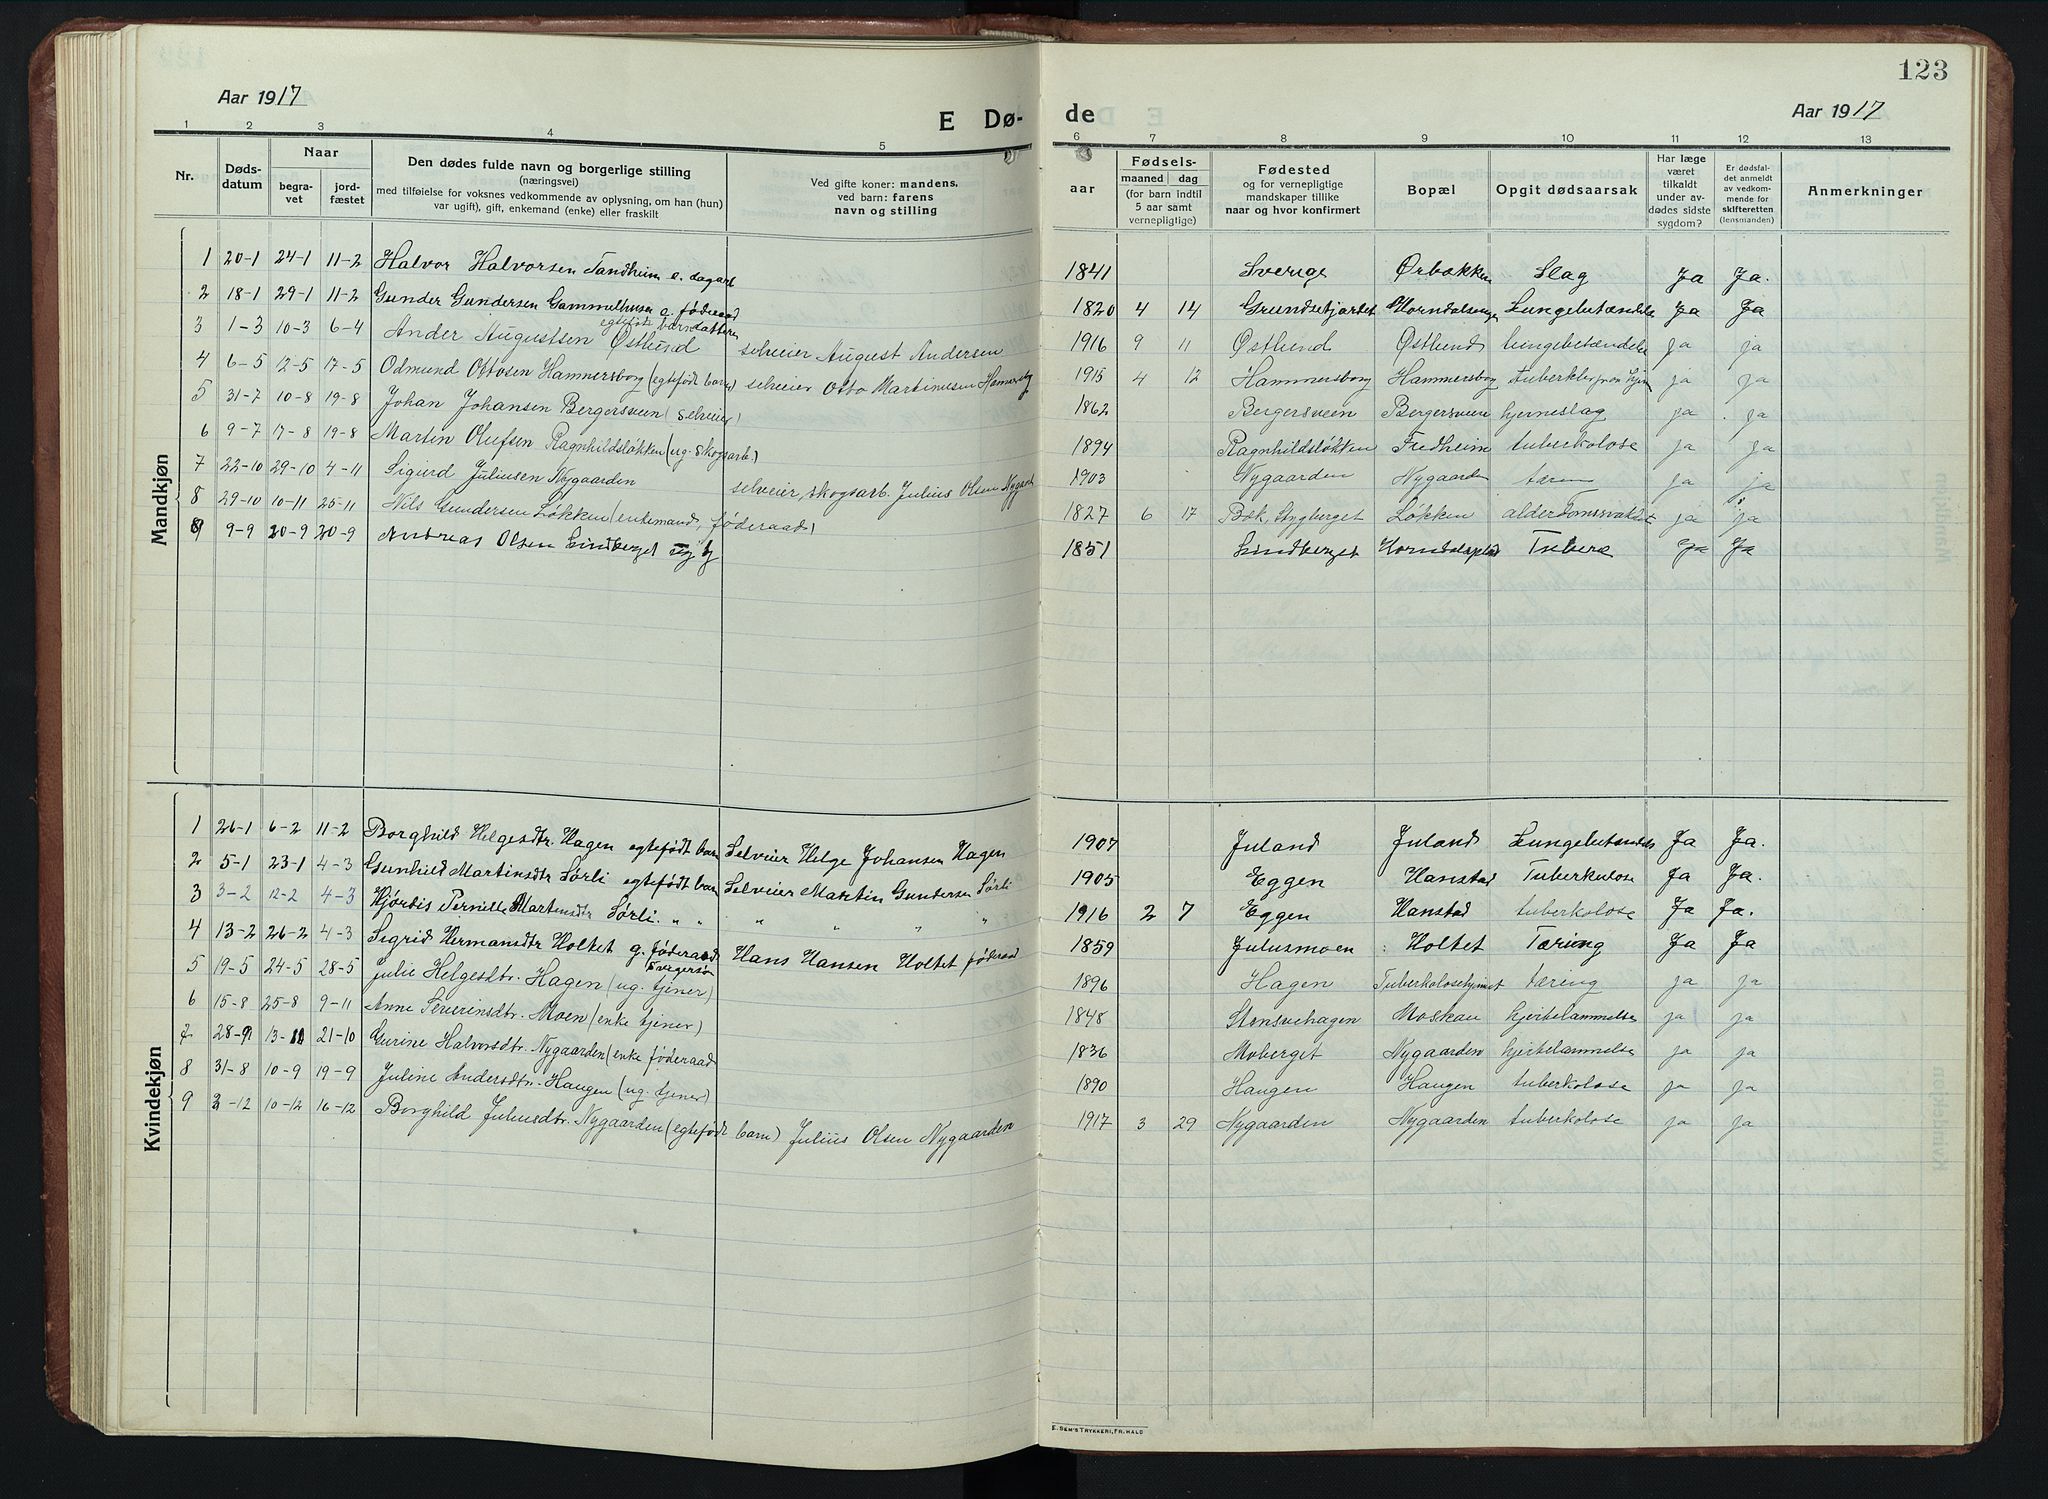 123
Aar 1917
E Dø- de
Aar 1917
1 2 3 4 5 6 7 8 9 10 11 12 13
Nr.
Døds-datum
Naar
begra-vet
jord-fæstet
Den dødes fulde navn og borgerlige stilling
(næringsvei)
med tilføielse for voksnes vedkommende av oplysning, om han (hun)
var ugift), gift, enkemand (enke) eller fraskilt
Ved gifte koner: mandens,
ved barn: farens
navn og stilling
Fødsels-
aar
maaned dag
(for barn indtil
5 aar samt
vernepligtige)
Fødested
og for vernepligtige
mandskaper tillike
naar og hvor konfirmert
Bopæl
Opgit dødsaarsak
Har læge
været
tilkaldt
under av-
dødes sidste
sygdom?
Er dødsfal-
det anmeldt
av vedkom-
mende for
skifteretten
(lensmanden)
Anmerkninger
Mandkjøn
1 20-1 24-1 11-2 Halvor Halvorsen Sandheim e. dagarb 1841 Sverige Ørbækken Slag Ja Ja.
2 18-1 29-1 11-2 Gunder Gundersen Gammelhusen e. føderaad 1820 4 14 Grundsetjordet Horndalsengen Lungebetændelse Ja Ja
3 1-3 10-3 6-4 Ander Augustsen Østlund egtefødt barn selveier August Andersen 1916 9 11 Østlund Østlund lungebetændelse ja ja
4 6-5 12-5 17-5 Odmund Ottosen Hammersborg (egtefødt barn) selveier Otto Martinusen Hamersborg 1915 4 12 Hammersborg Hammersborg ja ja
5 31-7 10-8 19-8 Johan Johansen Bergersveen (selveier) 1862 Bergersveen Bergersveen hjerneslag ja ja
6 9-7 17-8 19-8 Martin Olufsen Ragnhildsløkken (ug. skogsarb.) 1894 Ragnhildsløkken Fredheim tuberkolose ja ja
7 22-10 29-10 4-11 Sigurd Juliusen Nygaarden selveier, skogsarb. Julius Olsen Nygaard 1903 Nygaarden Nygaarden ja ja
8 29-10 10-11 25-11 Nils Gundersen Løkken (enkemand, føderaad) 1827 6 17 Bæk, Stygberget Løkken ja ja
9 9-9 20-9 20-9 Andreas Olsen Lindberget ug 1851 Lindberget Ja Ja
Kvindekjøn
1 26-1 6-2 11-2 Borghild Helgesdtr. Hagen egtefødt barn Selveier Helge Johansen Hagen 1907 Juland Juland Lungebetændelse Ja Ja.
2 5-1 23-1 4-3 Gunhild Martinsdtr Sørli egtefødt barn Selveier Martin Gundersen Sørli 1905 Eggen Hanstad Tuberkulose Ja Ja.
3 3-2 12-2 4-3 Hjørdis Pernille Martinsdtr Sørli. " " " " " " 1916 2 7 Eggen Hanstad tuberkolose Ja Ja.
4 13-2 26-2 4-3 Sigrid Hermansdtr Holtet g. føderaad Hans Hansen Holtet føderaad 1859 Julusmoen Holtet Tæring Ja Ja
5 19-5 24-5 28-5 Julie Helgesdtr. Hagen (ug. tjener) 1896 Hagen Tuberkolosehjemmet tæring ja ja
6 15-8 25-8 9-11 Anne Severinsdtr. Moen (enke tjener) 1848 Stensvehagen Moskau hjertelammelse ja ja
7 28-9 13-10 21-10 Gurine Halvorsdtr. Nygaarden (enke føderaad 1836 Moberget Nygaarden hjertelammelse ja ja
8 31-8 10-9 19-9 Juline Andersdtr. Haugen (ug. tjener) 1890 Haugen Haugen tuberkolose ja ja
9 2-12 10-12 16-12 Borghild Juliusdtr. Nygaarden (egtefødt barn) Julius Olsen Nygaarden 1917 3 29 Nygaarden Nygaarden tuberkolose ja ja
E. SEM'S TRYKKERI, FR.HALD